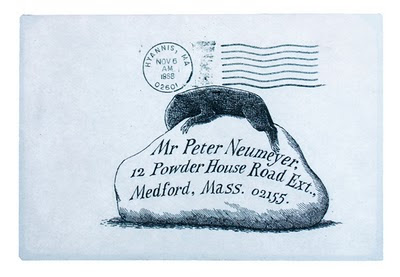 HYANNIS, MA
NOV 6
AM
1968
02601
Mr Peter Neumeyer,
12 Powder House Road Ext.,
Medford, Mass. 02155.